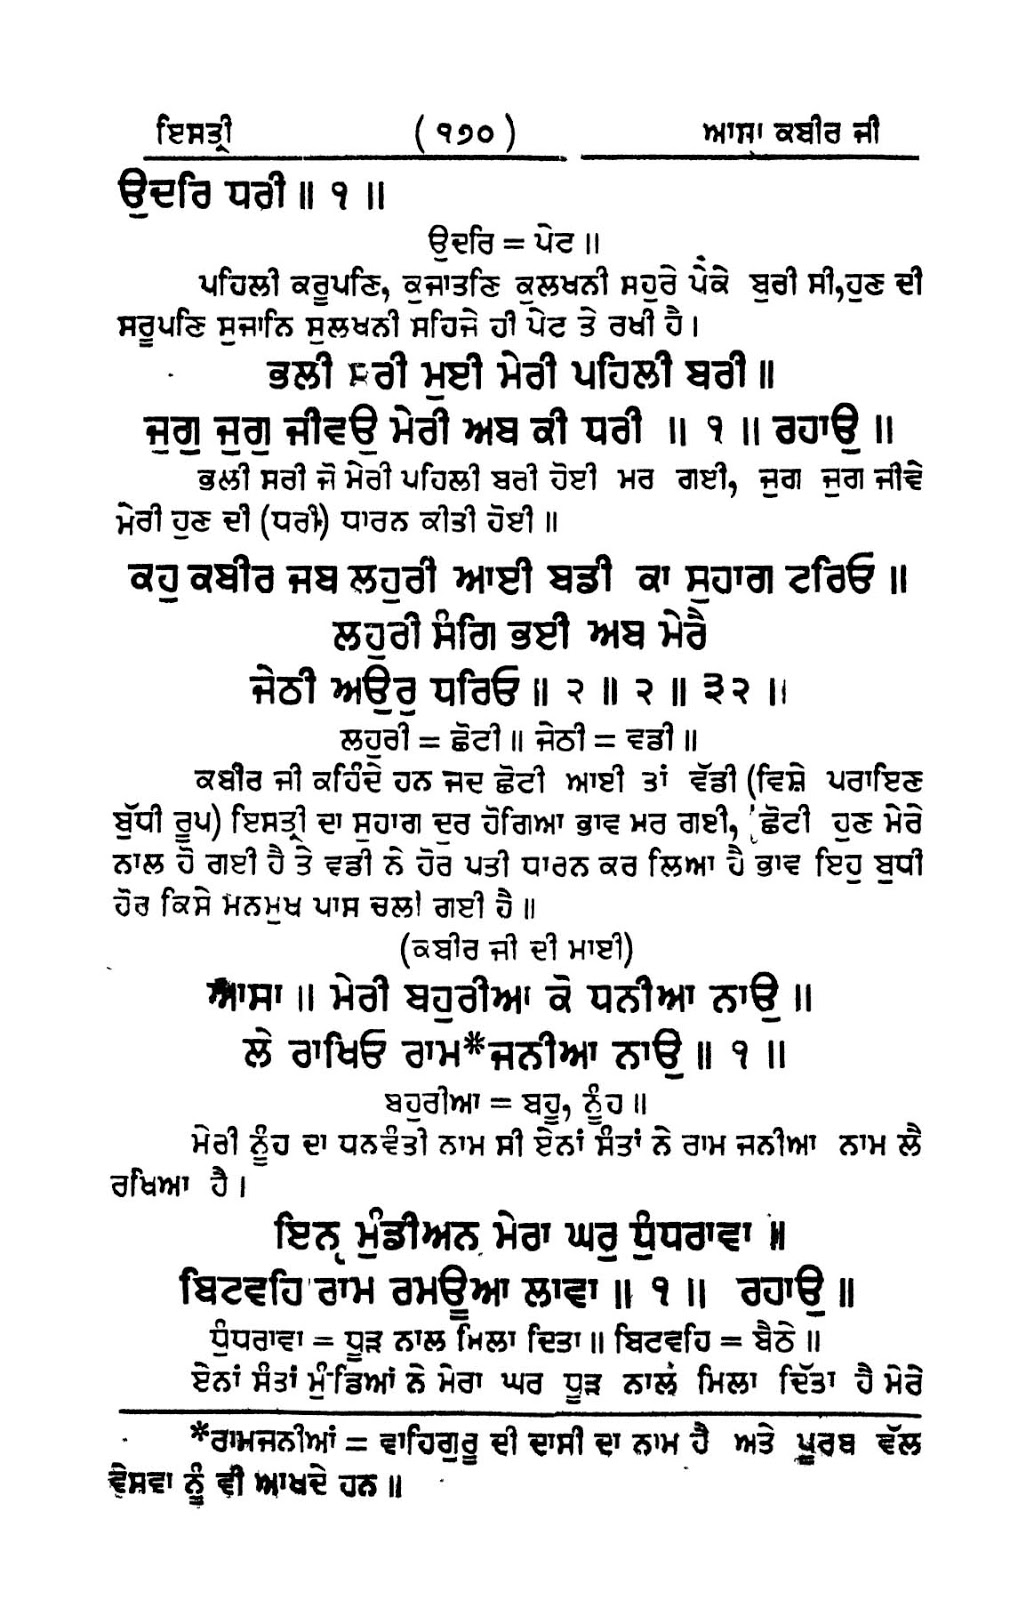 ਇਸਤ੍ਰੀ ( ੧੭੦ ) ਆਸਾ ਕਬੀਰ ਜੀ
ਉਦਰਿ ਧਰੀ ॥ ੧ ॥
ਉਦਰਿ = ਪੇਟ ॥
ਪਹਿਲੀ ਕਰੂਪਣਿ, ਕੁਜਾਤਣਿ ਕੁਲਖਨੀ ਸਹੁਰੇ ਪੇਕੇ ਬੁਰੀ ਸੀ,ਹੁਣ ਦੀ
ਸਰੂਪਣਿ ਸੁਜਾਨਿ ਸੁਲਖਨੀ ਸਹਿਜੇ ਹੀ ਪੇਟ ਤੇ ਰਖੀ ਹੈ।
ਭਲੀ ਸਰੀ ਮੁਈ ਮੇਰੀ ਪਹਿਲੀ ਬਰੀ ॥
ਜੁਗੁ ਜੁਗੁ ਜੀਵਉ ਮੇਰੀ ਅਬ ਕੀ ਧਰੀ ॥ ੧ ॥ ਰਹਾਉ ॥
ਭਲੀ ਸਰੀ ਜੋ ਮੇਰੀ ਪਹਿਲੀ ਬਰੀ ਹੋਈ ਮਰ ਗਈ, ਜੁਗ ਜੁਗ ਜੀਵੇ
ਮੇਰੀ ਹੁਣ ਦੀ (ਧਰੀ) ਧਾਰਨ ਕੀਤੀ ਹੋਈ ॥
ਕਹੁ ਕਬੀਰ ਜਬ ਲਹੁਰੀ ਆਈ ਬਡੀ ਕਾ ਸੁਹਾਗ ਟਰਿਓ ॥
ਲਹੁਰੀ ਸੰਗਿ ਭਈ ਅਬ ਮੇਰੈ
ਜੇਠੀ ਅਉਰੁ ਧਰਿਓ ॥ ੨ ॥ ੨ ॥ ੩੨ ॥
ਲਹੁਰੀ = ਛੋਟੀ ॥ ਜੇਠੀ = ਵਡੀ ॥
ਕਬੀਰ ਜੀ ਕਹਿੰਦੇ ਹਨ ਜਦ ਛੋਟੀ ਆਈ ਤਾਂ ਵੱਡੀ (ਵਿਸ਼ੇ ਪਰਾਇਣ
ਬੁੱਧੀ ਰੂਪ) ਇਸਤ੍ਰੀ ਦਾ ਸੁਹਾਗ ਦੂਰ ਹੋਗਿਆ ਭਾਵ ਮਰ ਗਈ, ਛੋਟੀ ਹੁਣ ਮੇਰੇ
ਨਾਲ ਹੋ ਗਈ ਹੈ ਤੇ ਵਡੀ ਨੇ ਹੋਰ ਪਤੀ ਧਾਰਨ ਕਰ ਲਿਆ ਹੈ ਭਾਵ ਇਹੁ ਬੁਧੀ
ਹੋਰ ਕਿਸੇ ਮਨਮੁਖ ਪਾਸ ਚਲੀ ਗਈ ਹੈ ॥
(ਕਬੀਰ ਜੀ ਦੀ ਮਾਈ)
ਆਸਾ ॥ ਮੇਰੀ ਬਹੁਰੀਆ ਕੋ ਧਨੀਆ ਨਾਉ ॥
ਲੇ ਰਾਖਿਓ ਰਾਮ*ਜਨੀਆ ਨਾਉ ॥ ੧ ॥
ਬਹੁਰੀਆ = ਬਹੂ, ਨੂੰਹ ॥
ਮੇਰੀ ਨੂੰਹ ਦਾ ਧਨਵੰਤੀ ਨਾਮ ਸੀ ਏਨਾਂ ਸੰਤਾਂ ਨੇ ਰਾਮ ਜਨੀਆ ਨਾਮ ਲੈ
ਰਖਿਆ ਹੈ।
ਇਨ੍ ਮੁੰਡੀਅਨ ਮੇਰਾ ਘਰੁ ਧੁੰਧਰਾਵਾ ॥
ਬਿਟਵਹਿ ਰਾਮ ਰਮਊਆ ਲਾਵਾ ॥ ੧ ॥ ਰਹਾਉ ॥
ਧੁੰਧਰਾਵਾ = ਧੂੜ ਨਾਲ ਮਿਲਾ ਦਿਤਾ ॥ ਬਿਟਵਹਿ = ਬੈਠੇ ॥
ਏਨਾਂ ਸੰਤਾਂ ਮੁੰਡਿਆਂ ਨੇ ਮੇਰਾ ਘਰ ਧੂੜ ਨਾਲ ਮਿਲਾ ਦਿੱਤਾ ਹੈ ਮੇਰੇ
*ਰਾਮਜਨੀਆਂ = ਵਾਹਿਗੁਰੂ ਦੀ ਦਾਸੀ ਦਾ ਨਾਮ ਹੈ ਅਤੇ ਪੂਰਬ ਵੱਲ
ਵੇਸਵਾ ਨੂੰ ਵੀ ਆਖਦੇ ਹਨ ॥